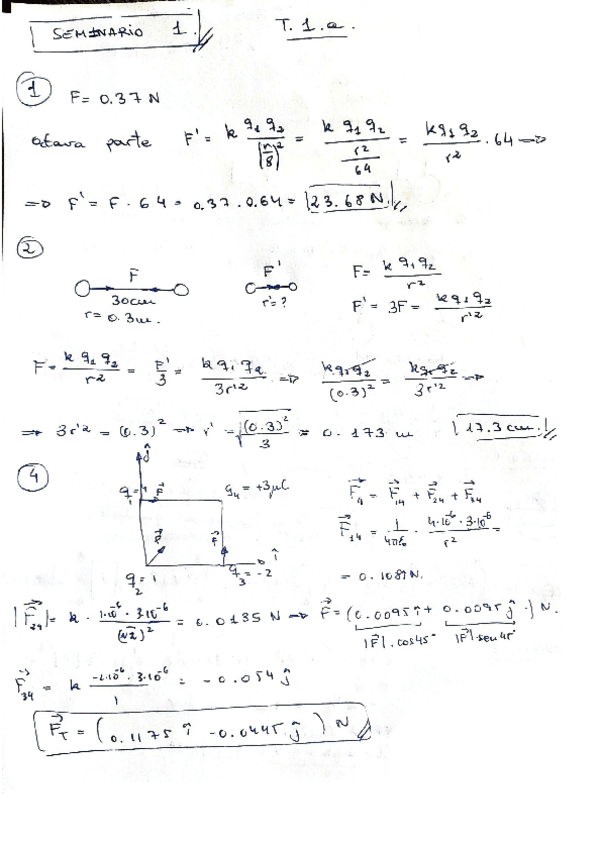 SEMINARIO 1. T.1.a.
① F= 0.37 N
otava parte F' = k q₁ q₂ / (r/8)² = k q₁ q₂ / (r²/64) = k q₁ q₂ / r² · 64 ⇒
⇒ F' = F · 64 = 0.37 · 0.64 = 23.68 N.
② F F' F= k q₁ q₂ / r²
30cm r'=? F' = 3F = k q₁ q₂ / r'²
r= 0.3 m.
F = k q₁ q₂ / r² = F'/3 = k q₁ q₂ / 3r'² ⇒ k q₁ q₂ / (0.3)² = k q₁ q₂ / 3r'² ⇒
⇒ 3r'² = (0.3)² ⇒ r' = √((0.3)²/3) = 0.173 m 17.3 cm.
④ ĵ q₄ = +3μC F⃗₄ = F⃗₁₄ + F⃗₂₄ + F⃗₃₄
q₁ = 4 F⃗ F⃗₁₄ = 1/4πε₀ · 4·10⁻⁶ · 3·10⁻⁶ / r² =
F⃗ F⃗ î
q₂ = 1 q₃ = -2 = 0.108 N.
|F⃗₂₄| = k · 1·10⁻⁶ · 3·10⁻⁶ / (√2)² = 0.0135 N ⇒ F⃗ = (0.0095 î + 0.0095 ĵ) N.
|F⃗|·cos45° |F⃗| sen 45°
F⃗₃₄ = k -2·10⁻⁶ · 3·10⁻⁶ / 1 = -0.054 ĵ
F⃗_T = (0.1175 î -0.0445 ĵ) N